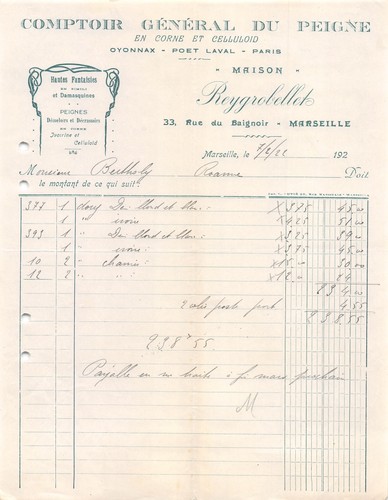 COMPTOIR GÉNÉRAL DU PEIGNE
EN CORNE ET CELLULOID
OYONNAX - POET LAVAL - PARIS
Hautes Fantaisies
et Damasquinées
PEIGNES
Démêloirs et Décrassoirs
EN CORNE
Ivoirine et
Celluloid
" MAISON "
Reygrobellet
33, Rue du Baignoir - MARSEILLE
Marseille, le 7/2/22 192
Monsieur Berthely Roanne Doit
le montant de ce qui suit:
377 1 X 3.75 45.00
1 " ivoire X 4.25 51.00
393 1 " X 3.25 39
1 " ivoire X 3.75 45.00
10 2 " X 15.00 30.00
12 2 " " X 12.00 24
234.00
2 colis poste port 4.55
238.55
238 F 55
Payable en ma traite à fin mars prochain